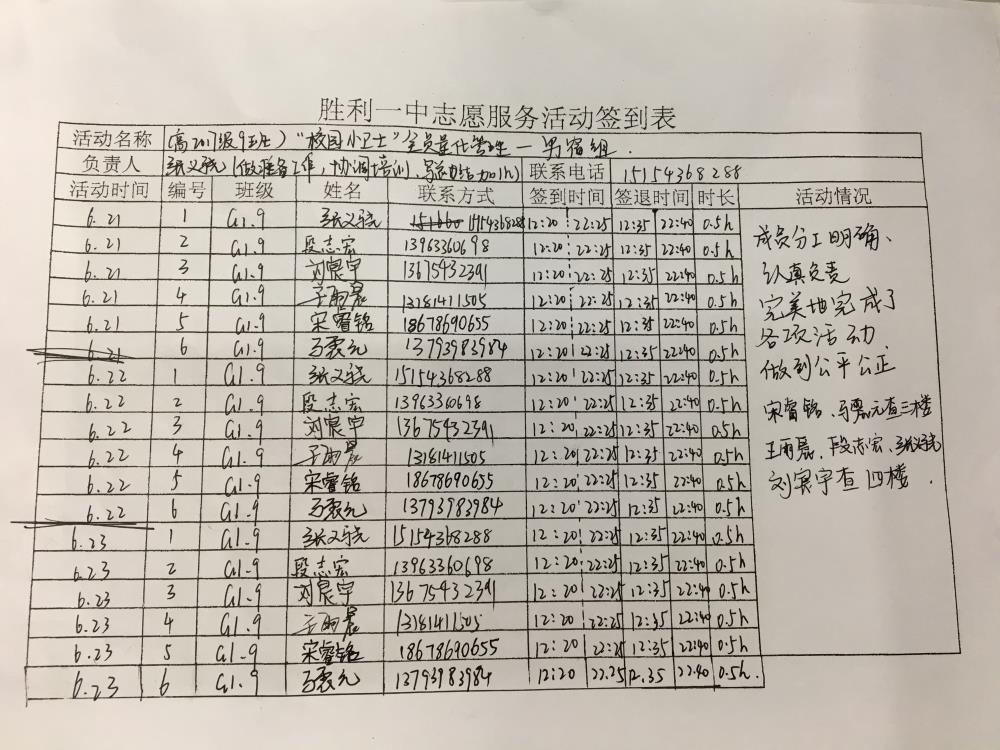 胜利一中志愿服务活动签到表
活动名称 (高2017级9班) "校园小卫士" 全员量化管理一男宿组.
负责人 张义骁 (做准备工作,协调培训, 加1h) 联系电话 15154368288
活动时间 编号 班级 姓名 联系方式 签到时间 签退时间 时长 活动情况
6.21 1 G1.9 张义骁 15154368288 12:20 22:25 12:35 22:40 0.5h
6.21 2 G1.9 段志宏 13963360698 12:20 22:25 12:35 22:40 0.5h
6.21 3 G1.9 刘寰宇 13675432391 12:20 22:25 12:35 22:40 0.5h
6.21 4 G1.9 王雨晨 13181411505 12:20 22:25 12:35 22:40 0.5h
6.21 5 G1.9 宋睿铭 18678690655 12:20 22:25 12:35 22:40 0.5h
6.21 6 G1.9 13793983984 12:20 22:25 12:35 22:40 0.5h
6.22 1 G1.9 张义骁 15154368288 12:20 22:25 12:35 22:40 0.5h
6.22 2 G1.9 段志宏 13963360698 12:20 22:25 12:35 22:40 0.5h
6.22 3 G1.9 刘寰宇 13675432391 12:20 22:25 12:35 22:40 0.5h
6.22 4 G1.9 王雨晨 13181411505 12:20 22:25 12:35 22:40 0.5h
6.22 5 G1.9 宋睿铭 18678690655 12:20 22:25 12:35 22:40 0.5h
6.22 6 G1.9 13793983984 12:20 22:25 12:35 22:40 0.5h
6.23 1 G1.9 张义骁 15154368288 12:20 22:25 12:35 22:40 0.5h
6.23 2 G1.9 段志宏 13963360698 12:20 22:25 12:35 22:40 0.5h
6.23 3 G1.9 刘寰宇 13675432391 12:20 22:25 12:35 22:40 0.5h
6.23 4 G1.9 王雨晨 13181411505 12:20 22:25 12:35 22:40 0.5h
6.23 5 G1.9 宋睿铭 18678690655 12:20 22:25 12:35 22:40 0.5h
6.23 6 G1.9 13793983984 12:20 22.25 12.35 22.40 0.5h.
成员分工明确、
认真负责
完美地完成了
各项活动.
做到公平公正
宋睿铭、马元查三楼
王雨晨、段志宏、张义骁
刘寰宇查四楼.